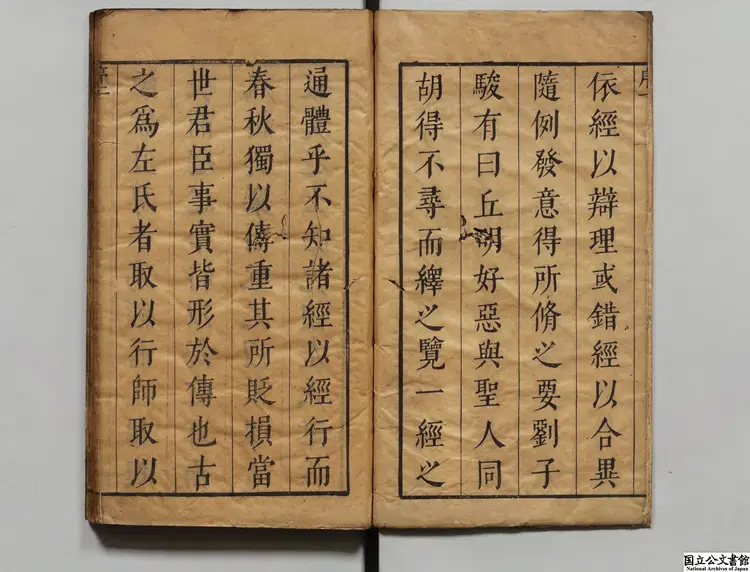 依經以辯理或錯經以合異
隨例發意得所脩之要劉子
駿有曰丘明好惡與聖人同
胡得不尋而繹之覽一經之
通體乎不知諸經以經行而
春秋獨以傳重其所貶損當
世君臣事實皆形於傳也古
之爲左氏者取以行師取以
序二
国立公文書館
National Archives of Japan